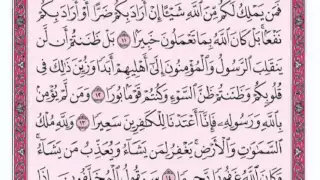 فَمَن يَمْلِكُ لَكُم مِّنَ ٱللَّهِ شَيْـًٔا إِنْ أَرَادَ بِكُمْ ضَرًّا أَوْ أَرَادَ بِكُمْ
نَفْعًۢا بَلْ كَانَ ٱللَّهُ بِمَا تَعْمَلُونَ خَبِيرًۢا ١١ بَلْ ظَنَنتُمْ أَن لَّن
يَنقَلِبَ ٱلرَّسُولُ وَٱلْمُؤْمِنُونَ إِلَىٰٓ أَهْلِيهِمْ أَبَدًا وَزُيِّنَ ذَٰلِكَ فِى
قُلُوبِكُمْ وَظَنَنتُمْ ظَنَّ ٱلسَّوْءِ وَكُنتُمْ قَوْمًۢا بُورًا ١٢ وَمَن لَّمْ يُؤْمِنۢ
بِٱللَّهِ وَرَسُولِهِۦ فَإِنَّآ أَعْتَدْنَا لِلْكَٰفِرِينَ سَعِيرًا ١٣ وَلِلَّهِ مُلْكُ
ٱلسَّمَٰوَٰتِ وَٱلْأَرْضِ يَغْفِرُ لِمَن يَشَآءُ وَيُعَذِّبُ مَن يَشَآءُ
وَكَانَ ٱللَّهُ غَفُورًا رَّحِيمًا ١٤ سَيَقُولُ ٱلْمُخَلَّفُونَ إِذَا